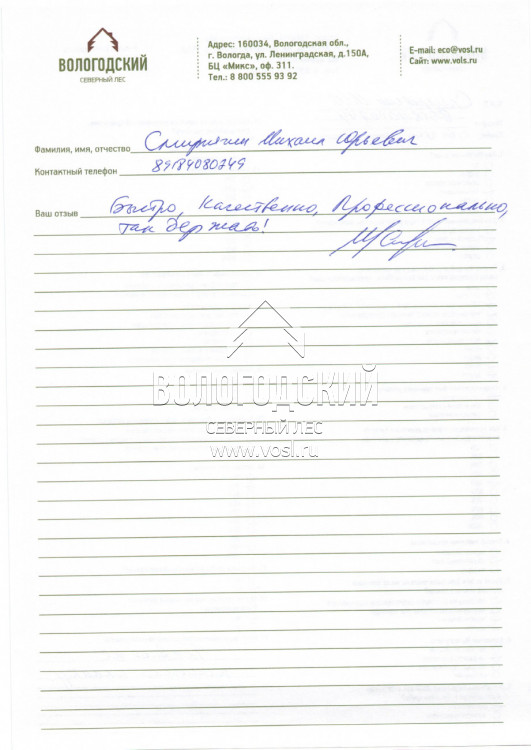 ВОЛОГОДСКИЙ
СЕВЕРНЫЙ ЛЕС
Адрес: 160034, Вологодская обл.,
г. Вологда, ул. Ленинградская, д.150А,
БЦ «Микс», оф. 311.
Тел.: 8 800 555 93 92
E-mail: eco@vosl.ru
Сайт: www.vols.ru
Фамилия, имя, отчество Смирнягин Михаил Юрьевич
Контактный телефон 89184080749
Ваш отзыв Быстро, Качественно, Профессионально,
так держать!
ВОЛОГОДСКИЙ
СЕВЕРНЫЙ ЛЕС
www.vosl.ru